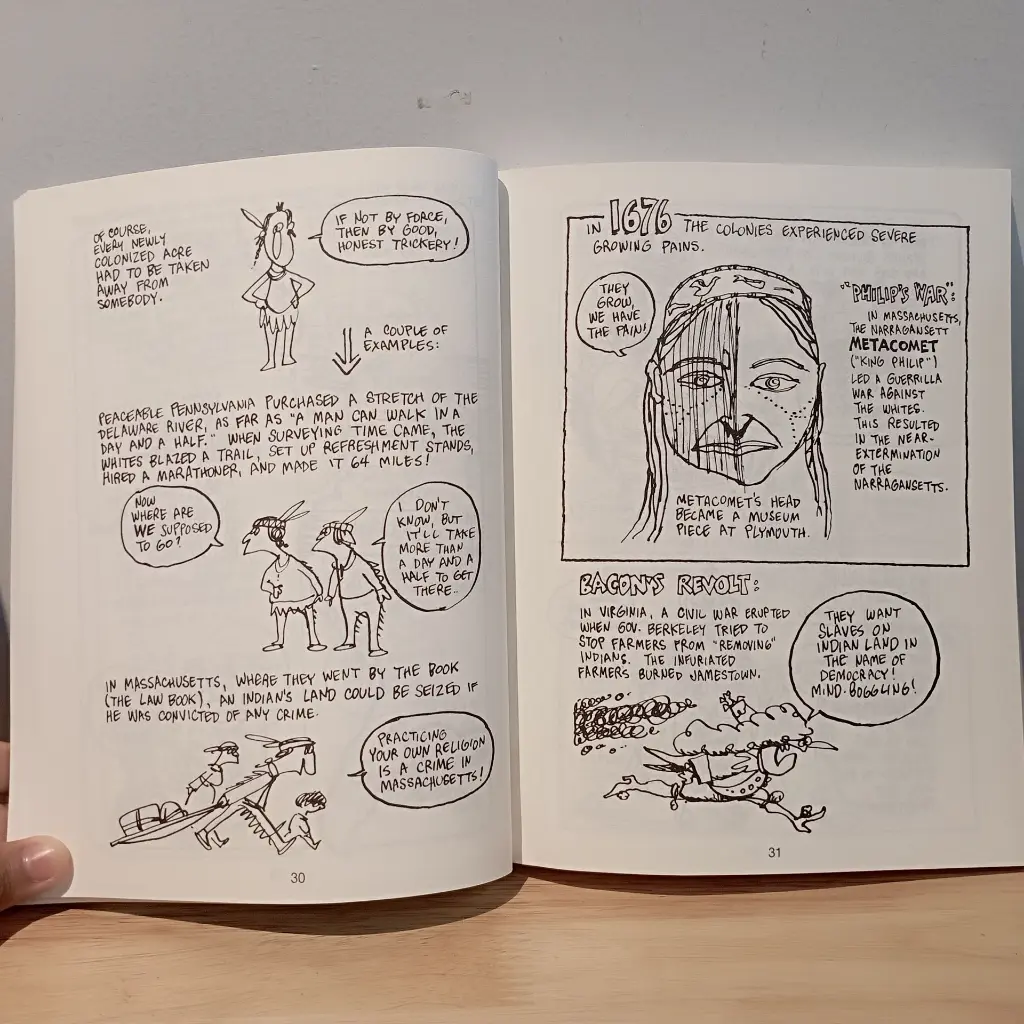 OF COURSE,
EVERY NEWLY
COLONIZED ACRE
HAD TO BE TAKEN
AWAY FROM
SOMEBODY.
IF NOT BY FORCE,
THEN BY GOOD,
HONEST TRICKERY!
A COUPLE OF
EXAMPLES:
PEACEABLE PENNSYLVANIA PURCHASED A STRETCH OF THE
DELAWARE RIVER, AS FAR AS "A MAN CAN WALK IN A
DAY AND A HALF." WHEN SURVEYING TIME CAME, THE
WHITES BLAZED A TRAIL, SET UP REFRESHMENT STANDS,
HIRED A MARATHONER, AND MADE IT 64 MILES!
NOW
WHERE ARE
WE SUPPOSED
TO GO?
I DON'T
KNOW, BUT
IT'LL TAKE
MORE THAN
A DAY AND A
HALF TO GET
THERE..
IN MASSACHUSETTS, WHERE THEY WENT BY THE BOOK
(THE LAW BOOK), AN INDIAN'S LAND COULD BE SEIZED IF
HE WAS CONVICTED OF ANY CRIME.
PRACTICING
YOUR OWN RELIGION
IS A CRIME IN
MASSACHUSETTS!
30
IN 1676 THE COLONIES EXPERIENCED SEVERE
GROWING PAINS.
THEY
GROW,
WE HAVE
THE PAIN!
"PHILIP'S WAR":
IN MASSACHUSETTS,
THE NARRAGANSETT
METACOMET
("KING PHILIP")
LED A GUERRILLA
WAR AGAINST
THE WHITES.
THIS RESULTED
IN THE NEAR-
EXTERMINATION
OF THE
NARRAGANSETTS.
METACOMET'S HEAD
BECAME A MUSEUM
PIECE AT PLYMOUTH.
BACON'S REVOLT:
IN VIRGINIA, A CIVIL WAR ERUPTED
WHEN GOV. BERKELEY TRIED TO
STOP FARMERS FROM "REMOVING"
INDIANS. THE INFURIATED
FARMERS BURNED JAMESTOWN.
THEY WANT
SLAVES ON
INDIAN LAND IN
THE NAME OF
DEMOCRACY!
MIND-BOGGLING!
31